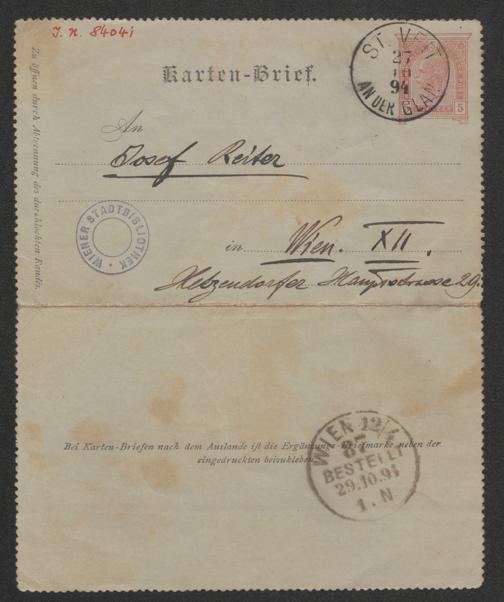 I. N. 84041
ST. VEIT
27
10
94
AN DER GLAN
5
Karten-Brief.
Zu öffnen durch Abtrennung des durchlochten Randes.
An
Josef Reiter
WIENER STADTBIBLIOTHEK
in Wien. XII.
Hetzendorfer Hauptstrasse 29.
Bei Karten-Briefen nach dem Auslande ist die Ergänzungs-Briefmarke neben der
eingedruckten beizukleben.
WIEN 12/1
87
BESTELLT
29.10.94
1. N